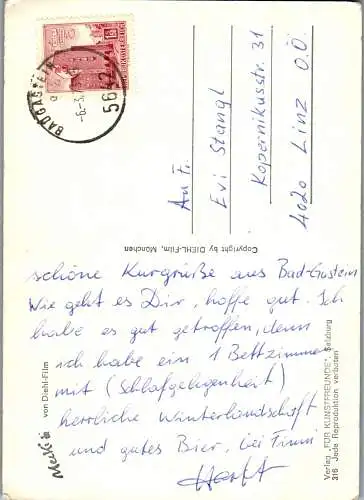 BADGASTEIN
-6.-3.
5642
REPUBLIK ÖSTERREICH
An F.
Evi Stangl
Kopernikusstr. 31
4020 Linz O.Ö.
Copyright by DIEHL-Film, München
schöne Kurgrüße aus Bad-Gastein
Wie geht es Dir, hoffe gut. Ich
habe es gut getroffen, denn
ich habe ein 1 Bettzimmer
mit (Schlafgelegenheit)
herrliche Winterlandschaft
und gutes Bier, bei Finni
von Diehl-Film
Verlag „FÜR KUNSTFREUNDE", Salzburg
316 Jede Reproduktion verboten